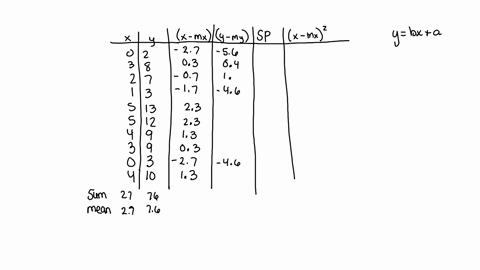 x y (x-mx) (y-my) SP (x-mx)² y=bx+a
0 2 -2.7 -5.6
3 8 0.3 0.4
2 7 -0.7 1.
1 3 -1.7 -4.6
5 13 2.3
5 12 2.3
4 9 1.3
3 9 0.3
0 3 -2.7 -4.6
4 10 1.3
Sum 27 76
mean 2.7 7.6